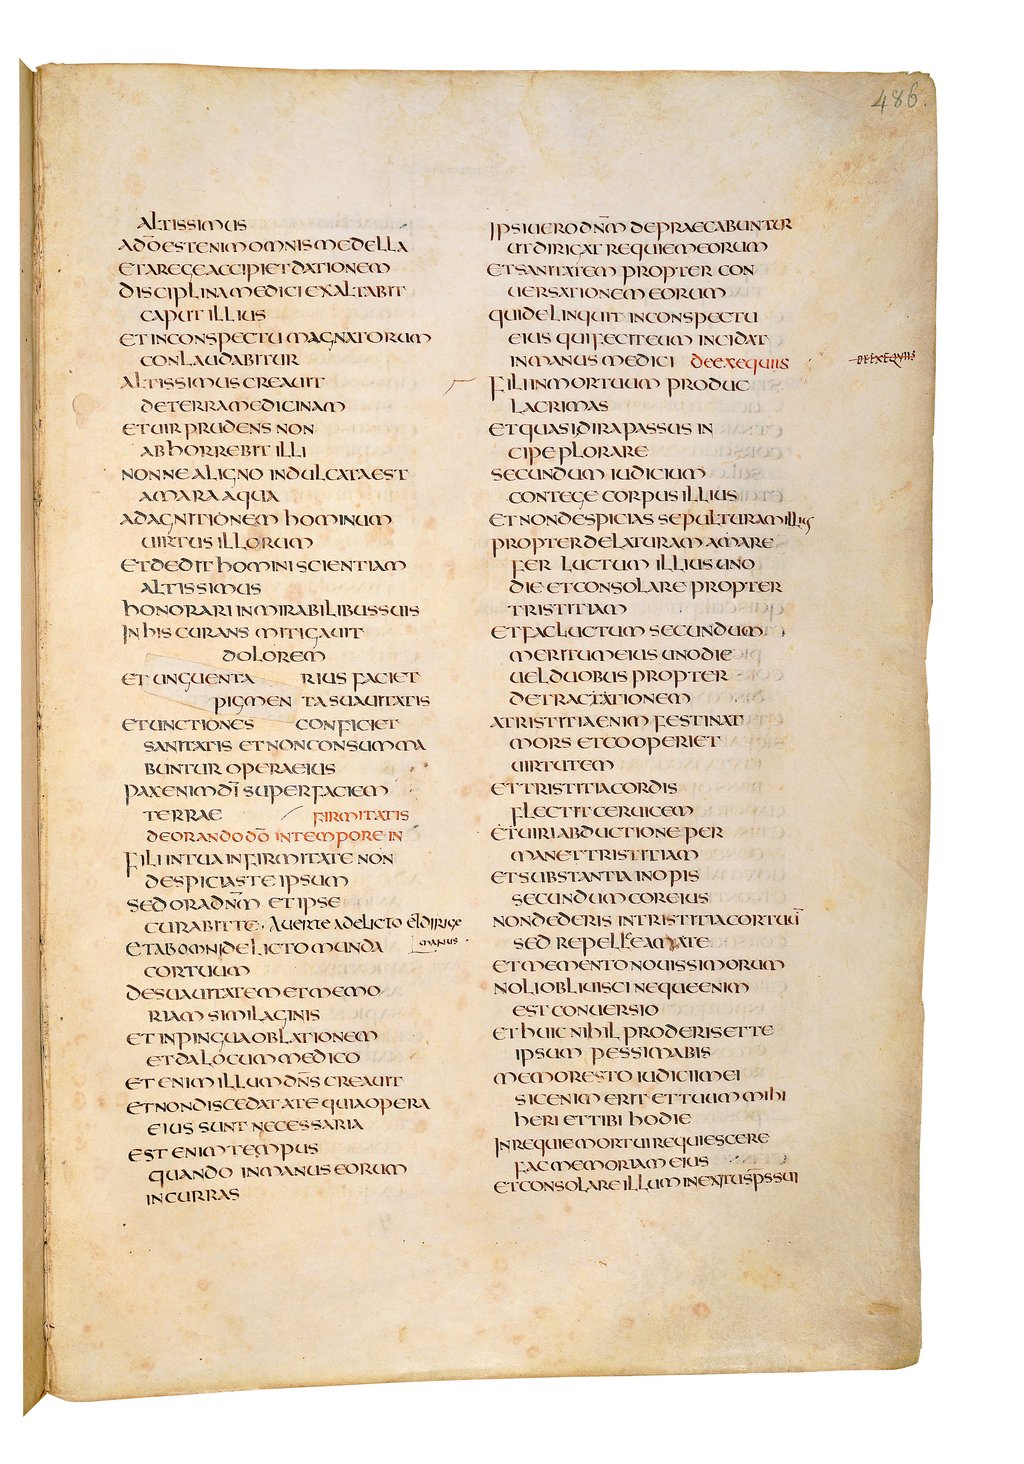 486.
ALTISSIMUS
ADŌ EST ENIM OMNIS MEDELLA
ET A REGE ACCIPIET DATIONEM
DISCIPLINA MEDICI EXALTABIT
CAPUT ILLIUS
ET IN CONSPECTU MAGNATORUM
CONLAUDABITUR
ALTISSIMUS CREAUIT
DE TERRA MEDICINAM
ET UIR PRUDENS NON
ABHORREBIT ILLI
NONNE A LIGNO INDULCATA EST
AMARA AQUA
AD AGNITIONEM HOMINUM
UIRTUS ILLORUM
ET DEDIT HOMINI SCIENTIAM
ALTISSIMUS
HONORARI IN MIRABILIBUS SUIS
IN HIS CURANS MITIGAUIT
DOLOREM
ET UNGUENTARIUS FACIET
PIGMENTA SUAUITATIS
ET UNCTIONES CONFICIET
SANITATIS ET NON CONSUMMA
BUNTUR OPERA EIUS
PAX ENIM DĪ SUPER FACIEM
TERRAE FIRMITATIS
DE ORANDO DŌ IN TEMPORE IN
FILI IN TUA INFIRMITATE NON
DESPICIAS TE IPSUM
SED ORA DN̄M ET IPSE
CURABIT TE · AUERTE A DELICTO ET DIRIGE
MANUS
ET AB OMNI DELICTO MUNDA
COR TUUM
DE SUAUITATEM ET MEMO
RIAM SIMILAGINIS
ET INPINGUA OBLATIONEM
ET DA LOCUM MEDICO
ET ENIM ILLUM DN̄S CREAUIT
ET NON DISCEDAT A TE QUIA OPERA
EIUS SUNT NECESSARIA
EST ENIM TEMPUS
QUANDO IN MANUS EORUM
INCURRAS
IPSI UERO DN̄M DEPRAECABUNTUR
UT DIRIGAT REQUIEM EORUM
ET SANITATEM PROPTER CON
UERSATIONEM EORUM
QUI DELINQUIT IN CONSPECTU
EIUS QUI FECIT EUM INCIDAT
IN MANUS MEDICI DE EXEQUIIS
DE EXEQUIIS
FILI IN MORTUUM PRODUC
LACRIMAS
ET QUASI DIRA PASSUS IN
CIPE PLORARE
SECUNDUM IUDICIUM
CONTEGE CORPUS ILLIUS
ET NON DESPICIAS SEPULTURAM ILLIUS
PROPTER DELATURAM AMARE
FER LUCTUM ILLIUS UNO
DIE ET CONSOLARE PROPTER
TRISTITIAM
ET FAC LUCTUM SECUNDUM
MERITUM EIUS UNO DIE
UEL DUOBUS PROPTER
DETRACTATIONEM
A TRISTITIA ENIM FESTINAT
MORS ET COOPERIET
UIRTUTEM
ET TRISTITIA CORDIS
FLECTIT CERUICEM
ET UIRI ABDUCTIONE PER
MANET TRISTITIAM
ET SUBSTANTIA INOPIS
SECUNDUM COR EIUS
NON DEDERIS IN TRISTITIA COR TUŪ
SED REPELLE EAM A TE
ET MEMENTO NOUISSIMORUM
NOLI OBLIUISCI NEQUE ENIM
EST CONUERSIO
ET HUIC NIHIL PRODERIS ET TE
IPSUM PESSIMABIS
MEMOR ESTO IUDICII MEI
SIC ENIM ERIT ET TUUM MIHI
HERI ET TIBI HODIE
IN REQUIE MORTUI REQUIESCERE
FAC MEMORIAM EIUS
ET CONSOLARE ILLUM IN EXITU SP̄S SUI